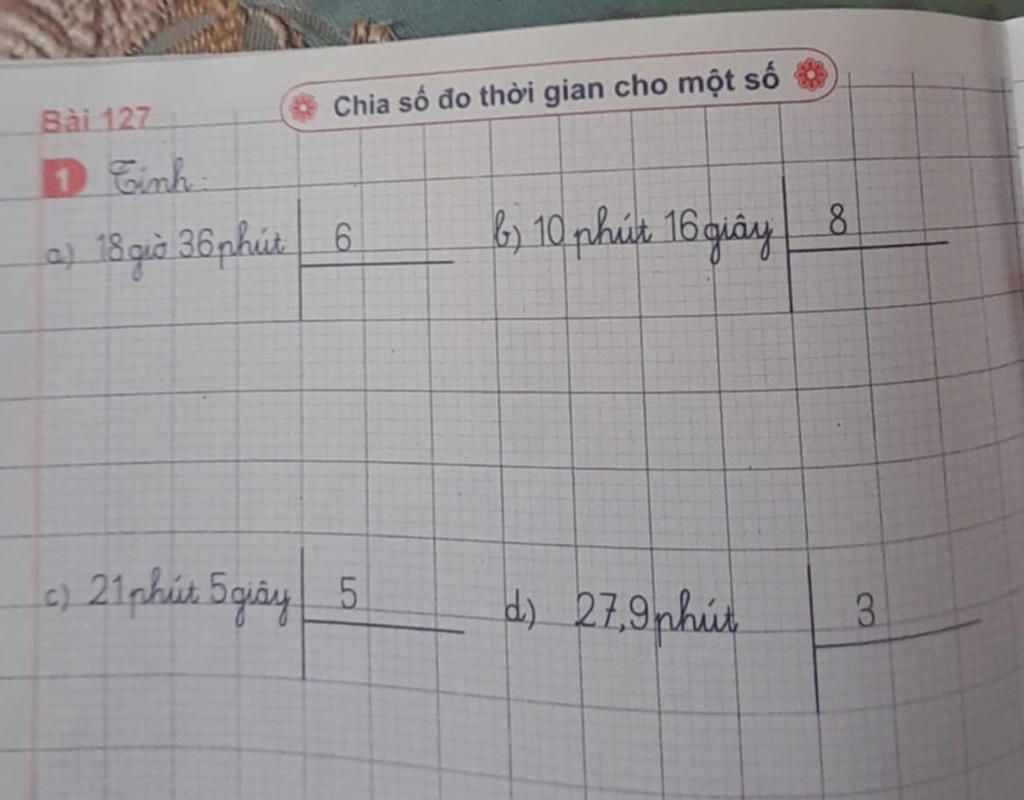 Bài 127
Chia số đo thời gian cho một số
1 Tính:
a) 18 giờ 36 phút 6
b) 10 phút 16 giây 8
c) 21 phút 5 giây 5
d) 27,9 phút 3